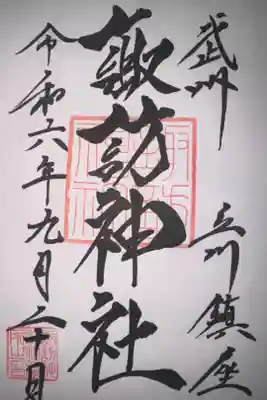 武州 立川鎮座
諏訪神社
令和六年九月二十日